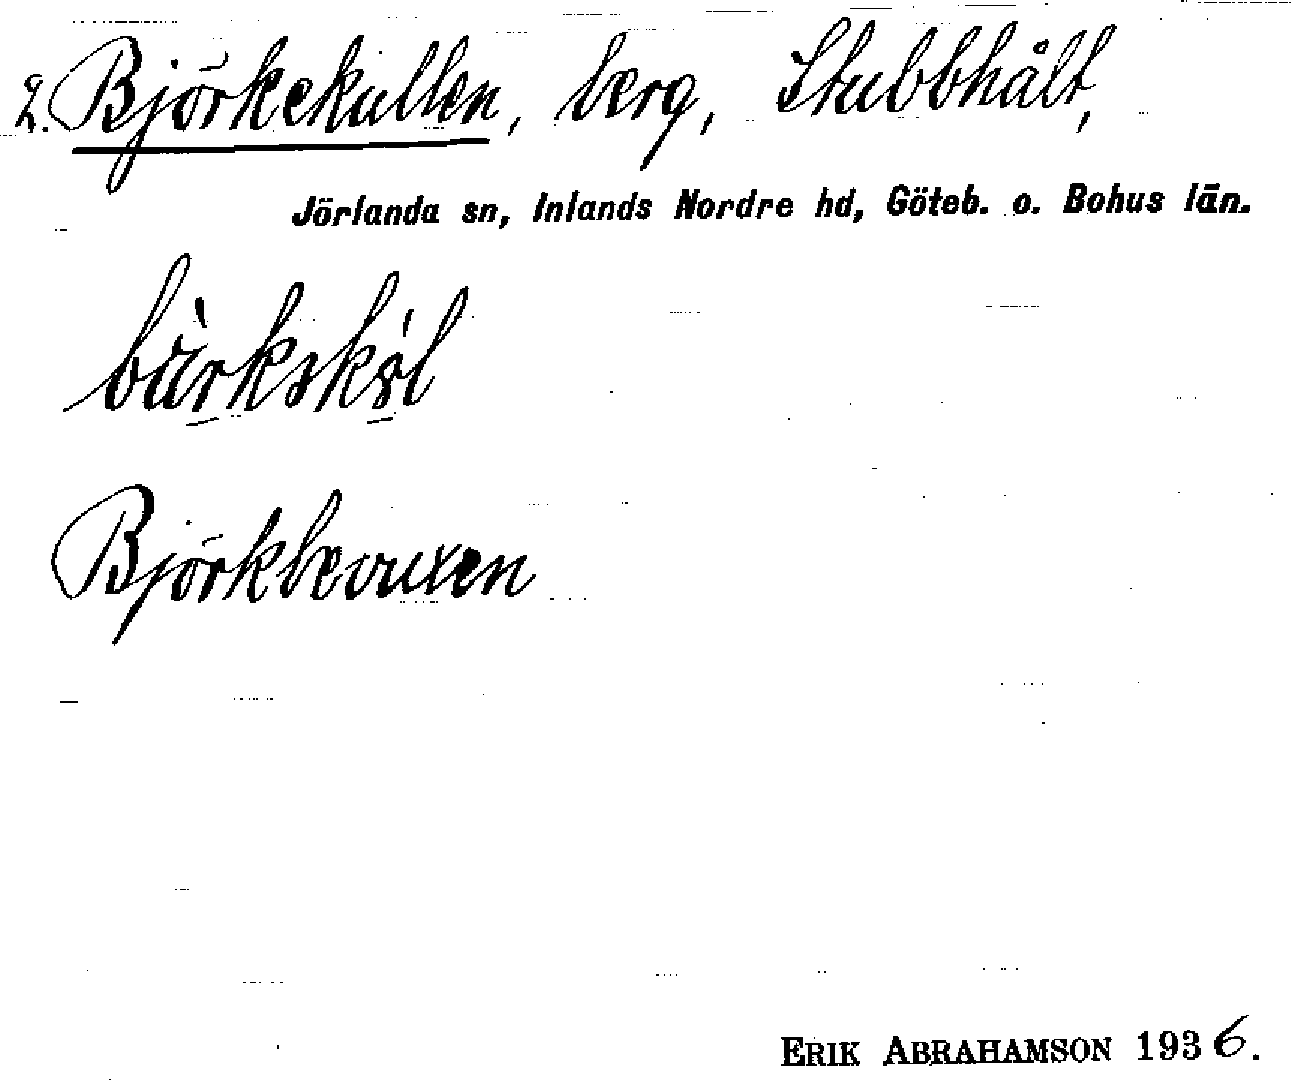 2. Björkekullen, berg, Stubbhålt,
Jörlanda sn, Inlands Nordre hd, Göteb. o. Bohus län.
Björkbevuxen
ERIK ABRAHAMSON 1936.